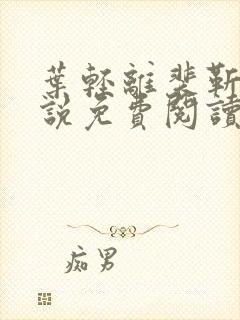 葉輕離裴靳
說免費閱讀
痴男